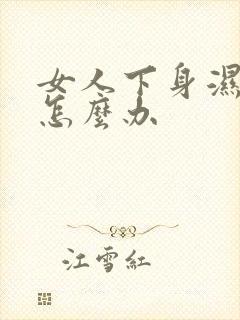 女人下身濕
怎麼办
江雪紅